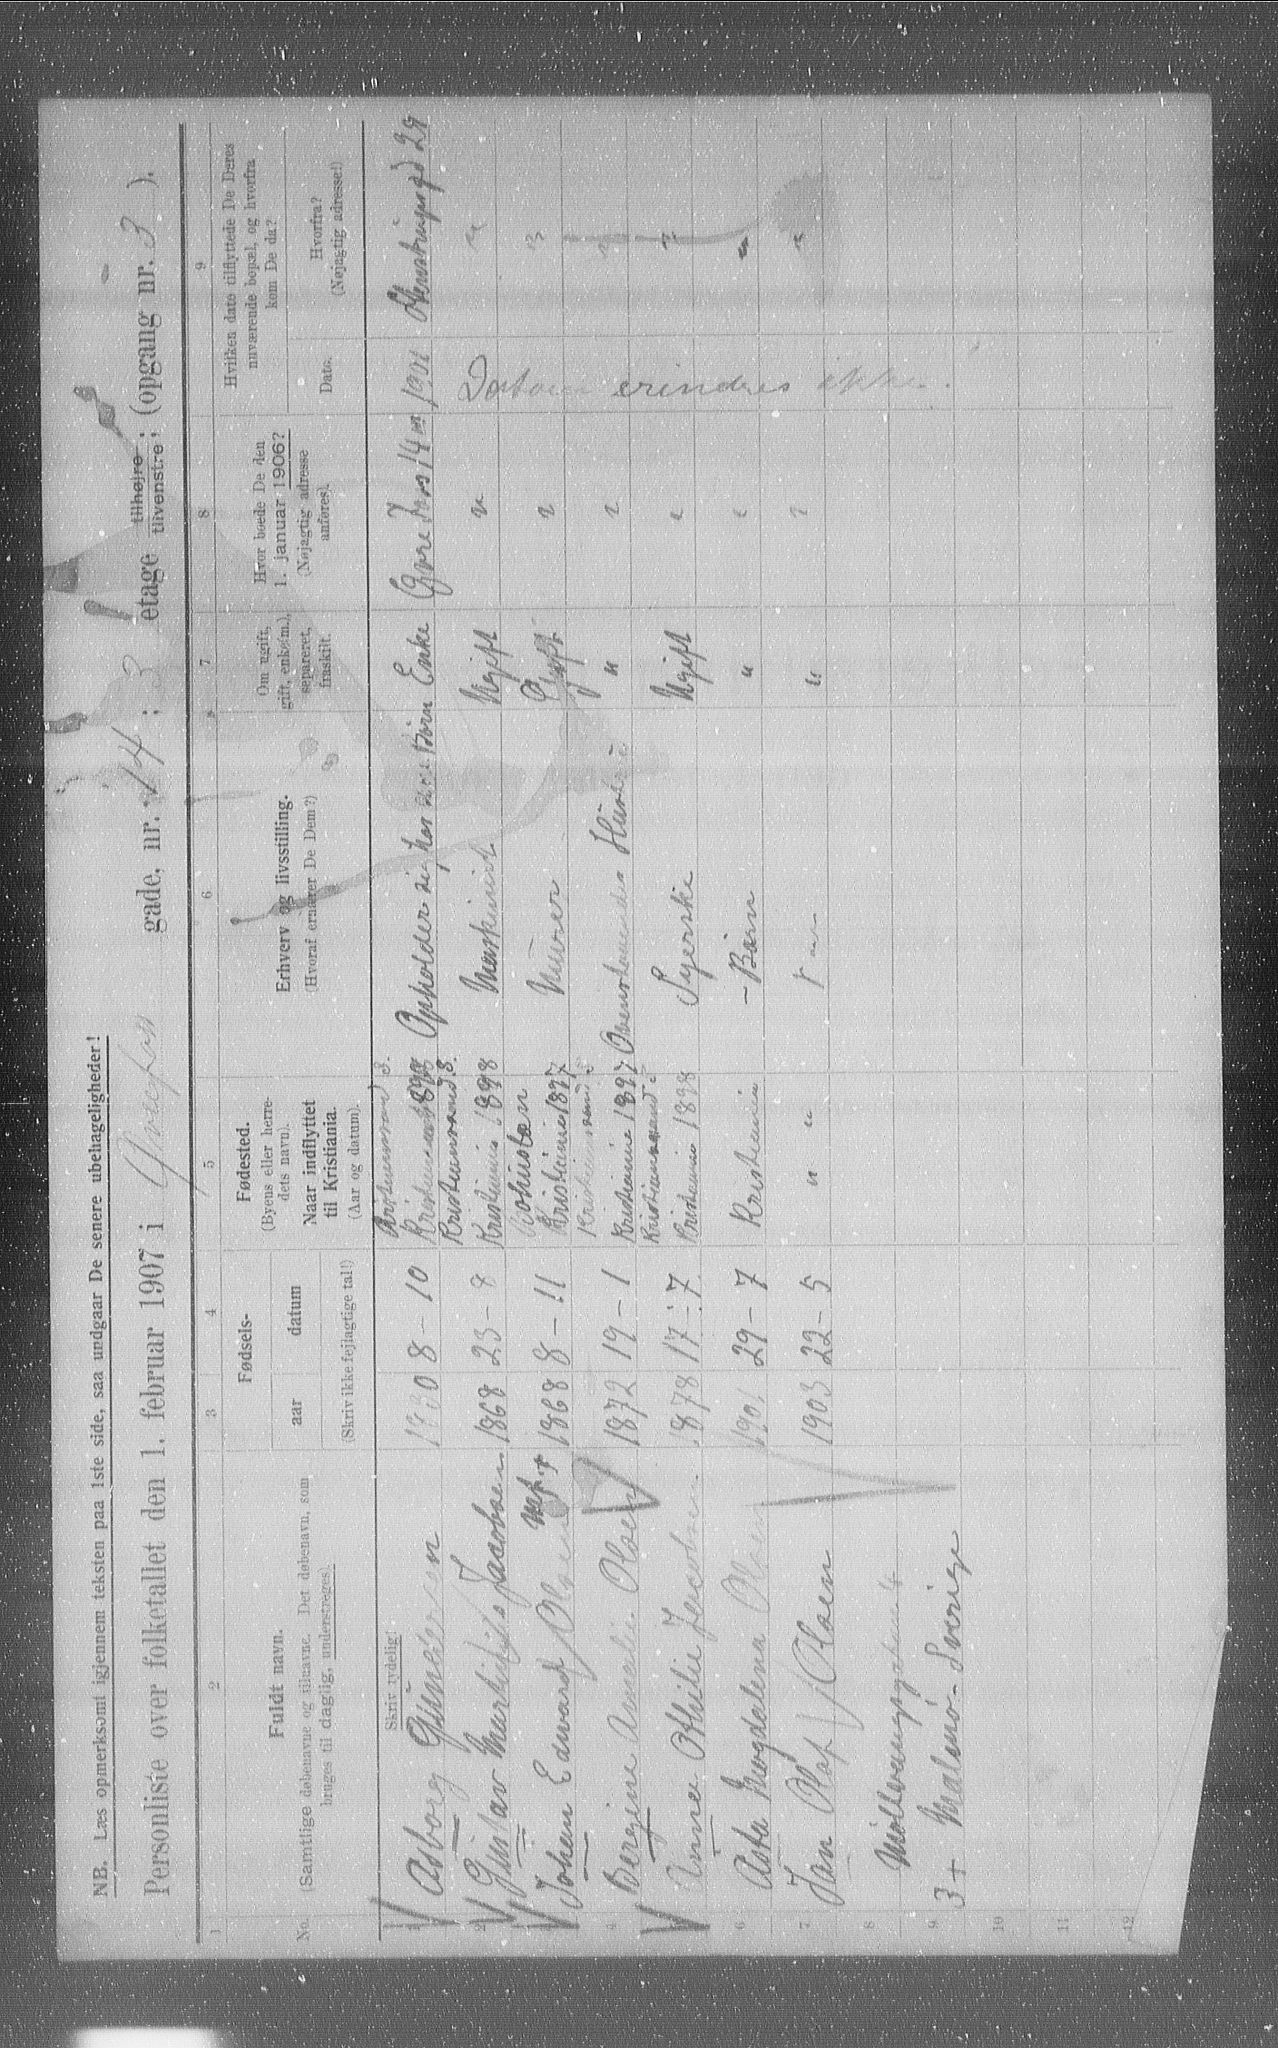 NB. Læs opmerksomt igjennem teksten paa 1ste side, saa undgaar De senere ubehageligheder!
Personliste over folketallet den 1. februar 1907 i gade, nr. 14 ; 3 etage tilhøjre tilvenstre; (opgang nr. 3 ).
1 2 3 4 5 6 7 8 9
No.
Fuldt navn.
(Samtlige døbenavne og tilnavne. Det døbenavn, som
bruges til dagtig, understreges).
Fødsels-
aar datum
(Skriv ikke fejlagtige tal!)
Fødested.
(Byens eller herre-
dets navn).
Naar indflyttet
til Kristiania.
(Aar og datum).
Erhverv og livsstilling.
(Hvoraf ernærer De Dem?)
Om ugift,
gift, enke(m.),
separeret,
fraskilt.
Hvor boede De den
1. januar 1906?
(Nøjagtig adresse
anføres).
Hvilken dato tilflyttede De Deres
nuværende bopæl, og hvorfra
kom De da?
Dato.
Hvorfra?
(Nøjagtig adresse!)
Skriv tydelig!
Kristianssand S.
1 Asborg Gundersen 8 - 10 Opholder sig hos sine Børn Enke 14 1901 29
Kristianssand S.
2 Gustav Jacobsen 1868 23 - 8 Kristiania 1898 Maskinist Ugift " Datoen erindres ikke. "
3 Johan Edvard Olsen 1868 8 - 11 Kristiania 1897 Murer Gift " "
Kristianssand S
4 Bergine Amalie Olsen 1872 19 - 1 Kristiania 1897 Husstel " " "
Kristianssand S
5 Anna Othilie Jacobsen 1878 17 - 7 Kristiania 1898 Syerske Ugift " "
6 Asta Magdalena Olsen 1901 29 - 7 Kristiania - Barn " " "
7 Jan Olaf Olsen 1903 22 - 5 " " " " " "
8
9 3 + Malmø - Sverige
10
11
12